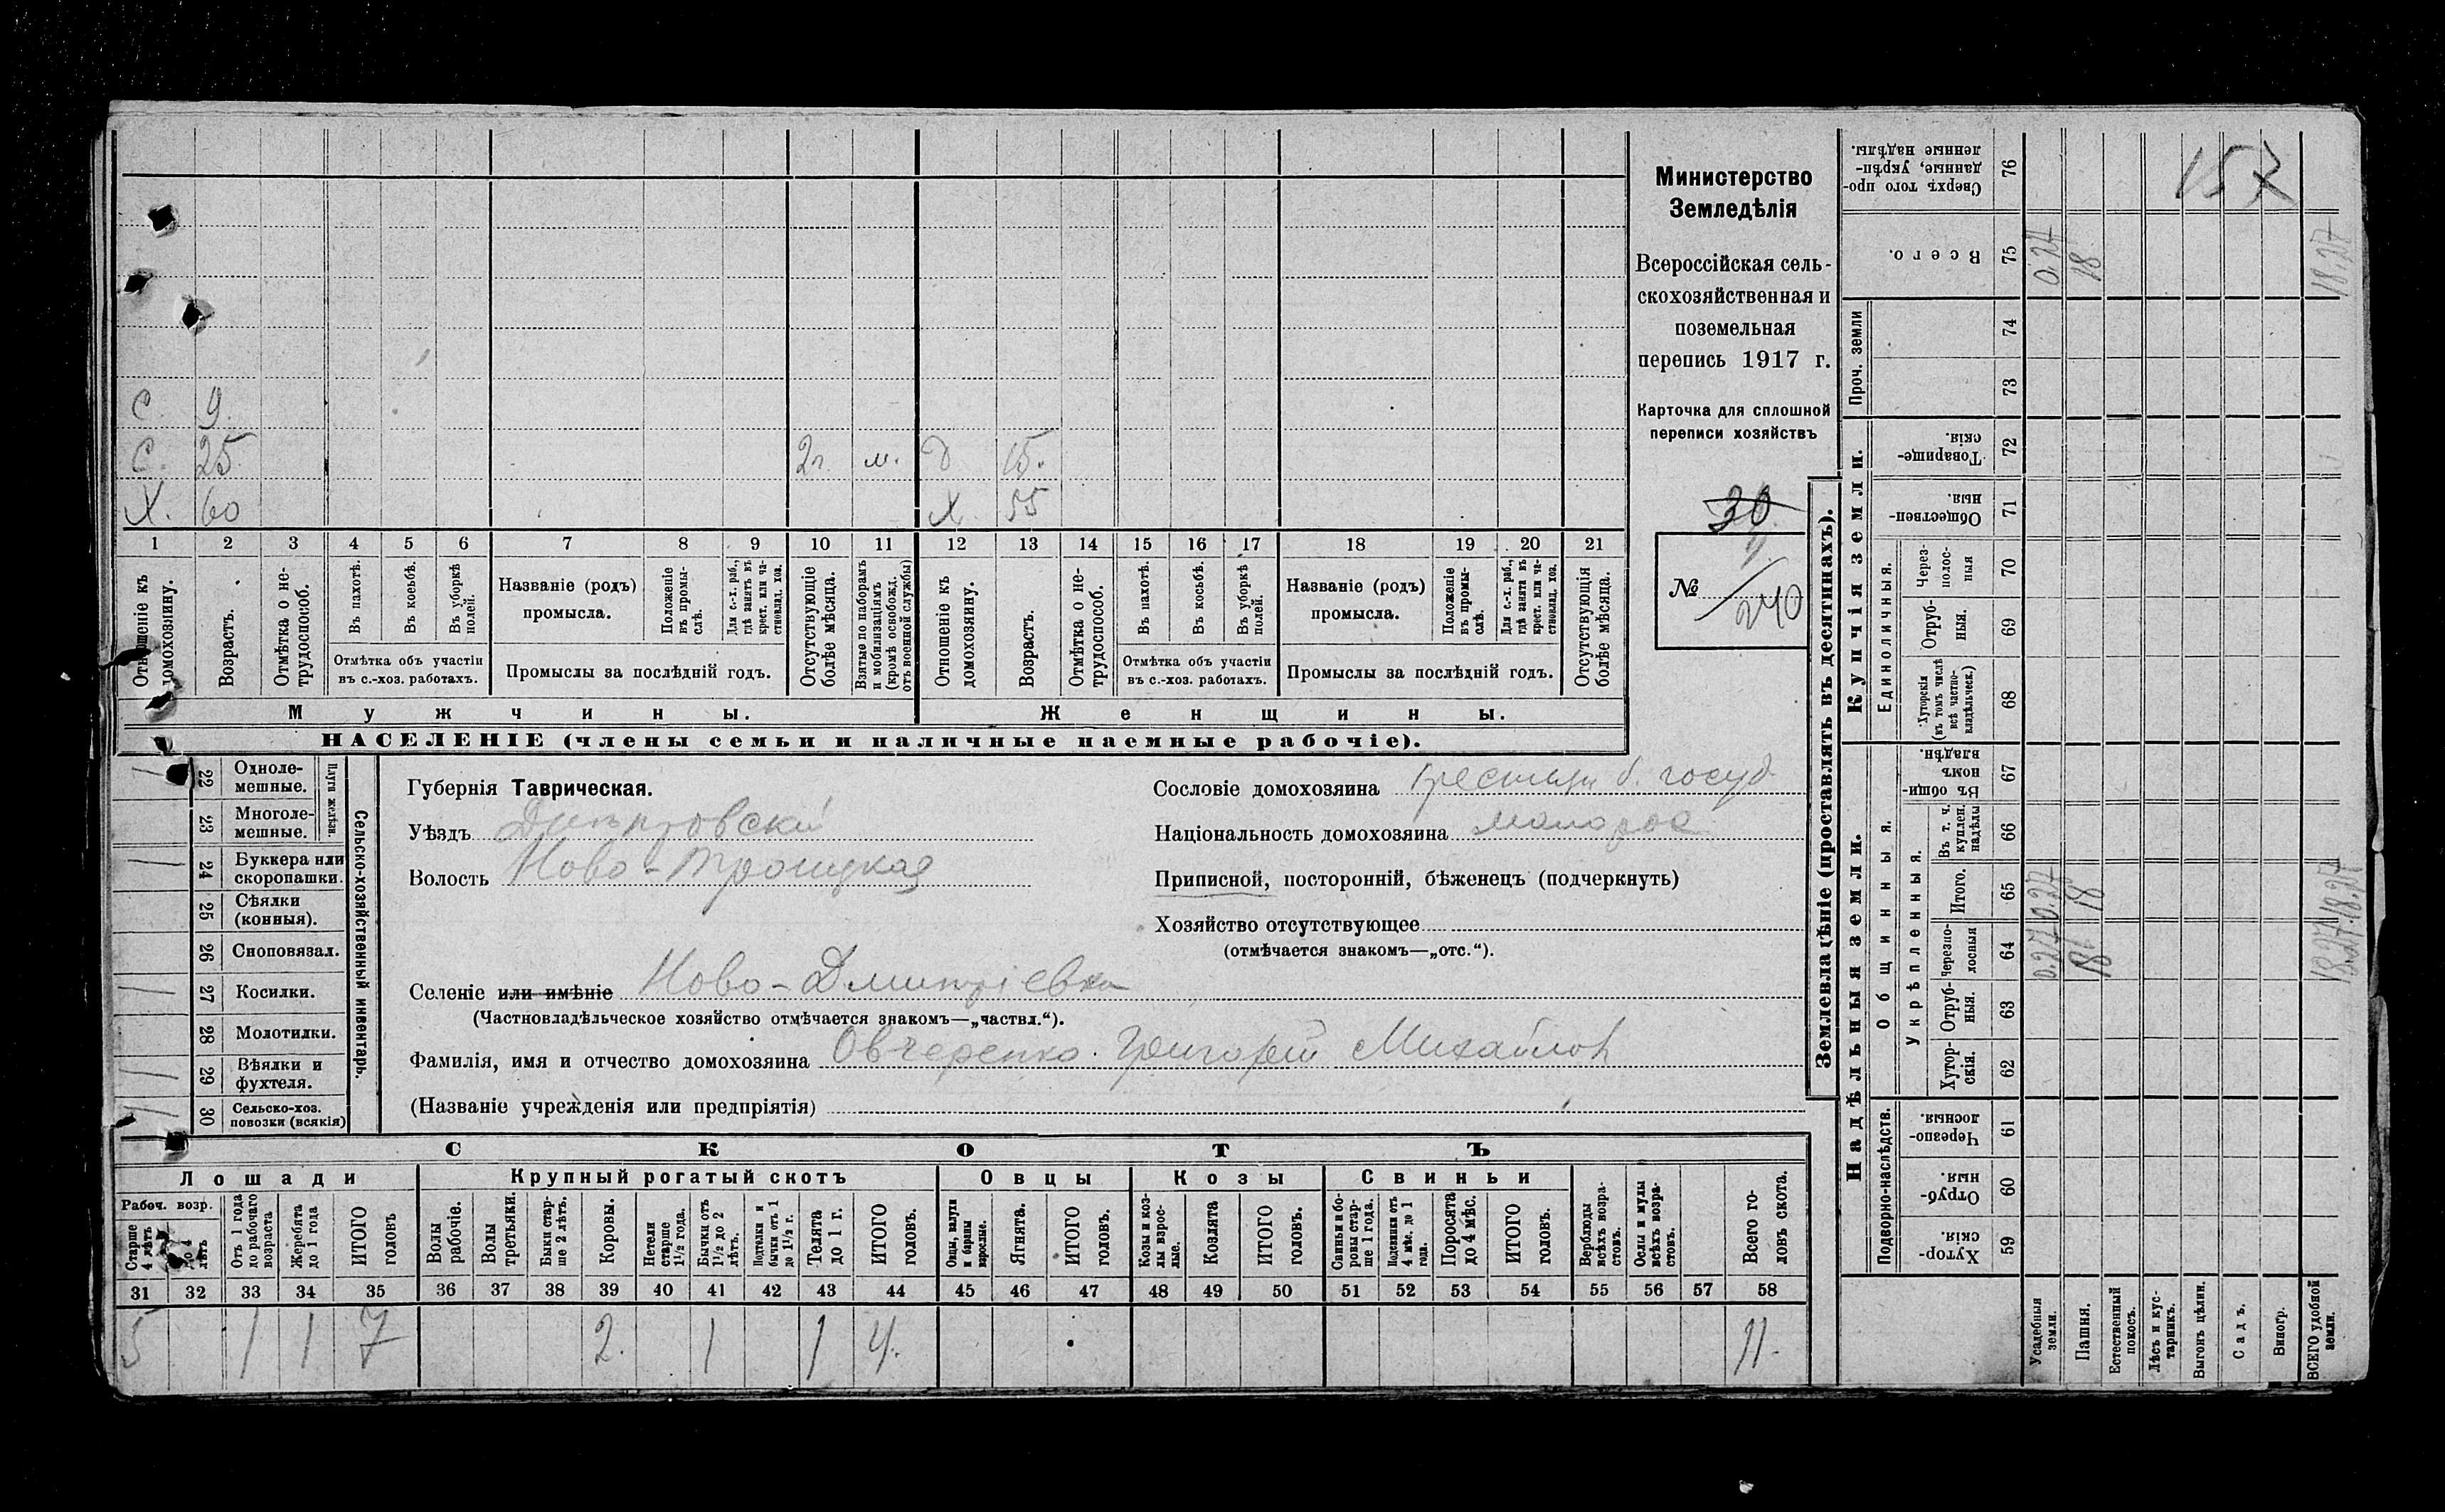 Министерство
Земледѣлія
Всероссійская сель-
скохозяйственная и
поземельная
перепись 1917 г.
Карточка для сплошной
переписи хозяйствъ
30
№ 240
С. 9.
С. 25. 2г. м. д 15.
Х. 60 Х 55
1 2 3 4 5 6 7 8 9 10 11 12 13 14 15 16 17 18 19 20 21
Отношеніе къ домохозяину.
Возрастъ.
Отмѣтка о не-трудоспособ.
Въ пахотѣ.
Въ косьбѣ.
Въ уборкѣ полей.
Названіе (родъ) промысла.
Положеніе въ промы-слѣ.
Для с.-х. раб., гдѣ занятъ въ крест. или ча-стновлад. хоз.
Отсутствующіе болѣе мѣсяца.
Взятые по наборамъ и мобилизаціямъ (кромѣ освобожд. отъ военной службы)
Отношеніе къ домохозяину.
Возрастъ.
Отмѣтка о не-трудоспособ.
Въ пахотѣ.
Въ косьбѣ.
Въ уборкѣ полей.
Названіе (родъ) промысла.
Положеніе въ промы-слѣ.
Для с.-х. раб., гдѣ занята въ крест. или ча-стновлад. хоз.
Отсутствующія болѣе мѣсяца.
Отмѣтка объ участіи въ с.-хоз. работахъ.
Промыслы за послѣдній годъ.
Отмѣтка объ участіи въ с.-хоз. работахъ.
Промыслы за послѣдній годъ.
Мужчины.
Женщины.
НАСЕЛЕНІЕ (члены семьи и наличные наемные рабочіе).
Сельско-хозяйственный инвентарь.
Плуги желѣзн.
1 22 Одноле-мешные.
23 Многоле-мешные.
1 24 Буккера или скоропашки.
25 Сѣялки (конныя).
26 Сноповязал.
1 27 Косилки.
28 Молотилки.
1 29 Вѣялки и фухтеля.
30 Сельско-хоз. повозки (всякія)
Губернія Таврическая.
Уѣздъ Днѣпровскій
Волость Ново-Троицкая
Сословіе домохозяина крестьян б. госуд
Національность домохозяина малорос
Приписной, посторонній, бѣженецъ (подчеркнуть)
Хозяйство отсутствующее
(отмѣчается знакомъ—„отс.“).
Селеніе или имѣніе Ново-Дмитріевка
(Частновладѣльческое хозяйство отмѣчается знакомъ—„частвл.“).
Фамилія, имя и отчество домохозяина Овчеренко Григорій Михайлов
(Названіе учрежденія или предпріятія)
СКОТЪ
Лошади
Крупный рогатый скотъ
Овцы
Козы
Свиньи
Рабоч. возр.
Старше 4 лѣтъ
До 4 лѣтъ
Отъ 1 года до рабочаго возраста
Жеребята до 1 года
ИТОГО головъ
Волы рабочіе.
Волы третьяки.
Быки стар-ше 2 лѣтъ.
Коровы.
Нетели старше 1½ года.
Бычки отъ 1½ до 2 лѣтъ.
Подтелки и бычки отъ 1 до 1½ г.
Телята до 1 г.
ИТОГО головъ.
Овцы, валухи и бараны взрослые.
Ягнята.
ИТОГО головъ.
Козы и коз-лы взрос-лые.
Козлята
ИТОГО головъ.
Свиньи и бо-ровы стар-ше 1 года.
Подсвинки отъ 4 мѣс. до 1 года.
Поросята до 4 мѣс.
ИТОГО головъ.
Верблюды всѣхъ возра-стовъ.
Ослы и мулы всѣхъ возра-стовъ.
Всего го-ловъ скота.
31 32 33 34 35 36 37 38 39 40 41 42 43 44 45 46 47 48 49 50 51 52 53 54 55 56 57 58
5 1 1 7 2. 1 1 4. 11.
Землевладѣніе (проставлять въ десятинахъ).
Надѣльныя земли.
Купчія земли.
Проч. земли
Подворно-наслѣдств.
Общинныя.
Укрѣпленныя.
Единоличныя.
157
76 Сверхъ того про-данные, укрѣп-ленные надѣлы.
75 Всего. 0.27 18 18.27
74
73
72 Товарище-скія.
71 Обществен-ныя.
70 Через-полос-ныя
69 Отруб-ныя.
68 Хуторскія (въ томъ числѣ всѣ частно-владѣльческ.)
67 Въ общи-номъ владѣн.
66 Въ т. ч. куплен. надѣлы
65 Итого. 0.27 18 18.27
64 Черезпо-лосныя 0.27 18 18.27
63 Отруб-ныя.
62 Хутор-скія.
61 Черезпо-лосныя
60 Отруб-ныя.
59 Хутор-скія.
Усадебныя земли.
Пашня.
Естественный покосъ.
Лѣсъ и кус-тарникъ.
Выгонъ цѣлин.
Садъ.
Виногр.
ВСЕГО удобной земли.